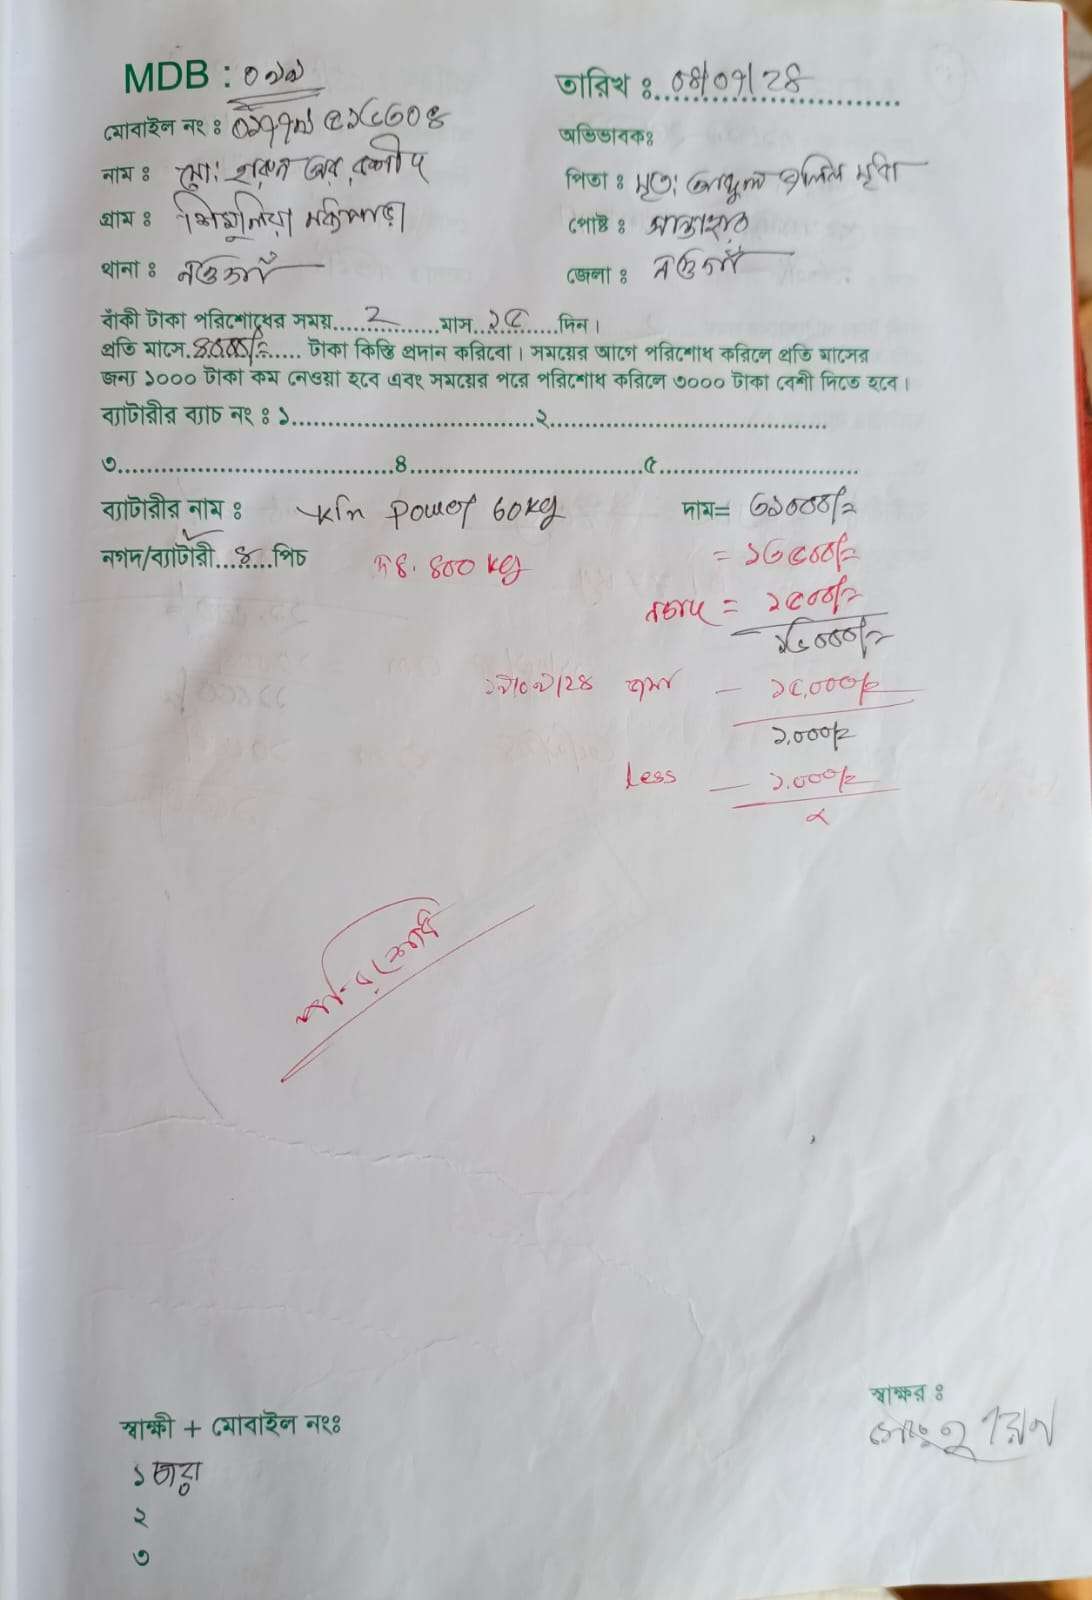 MDB : ০১৯
তারিখ ঃ 08/07/28
মোবাইল নং ঃ
অভিভাবকঃ
নাম ঃ মো: হারুন অর রশীদ
পিতা ঃ মৃত: আব্দুল জলিল মৃধা
গ্রাম ঃ শিমুলিয়া মধ্যপাড়া
পোষ্ট ঃ সান্তাহার
থানা ঃ নওগাঁ
জেলা ঃ নওগাঁ
বাঁকী টাকা পরিশোধের সময়......২......মাস...১৫......দিন।
প্রতি মাসে.8000/=..... টাকা কিস্তি প্রদান করিবো। সময়ের আগে পরিশোধ করিলে প্রতি মাসের
জন্য ১০০০ টাকা কম নেওয়া হবে এবং সময়ের পরে পরিশোধ করিলে ৩০০০ টাকা বেশী দিতে হবে।
ব্যাটারীর ব্যাচ নং ঃ ১.................................২.......................................
৩.......................................৪.................................৫............................
ব্যাটারীর নাম ঃ Power 60kg
দাম= ৩১০০০/=
নগদ/ব্যাটারী...৪...পিচ
৪০০ kg
= ১৩৫০০/=
নগদ = ১৫০০/=
১৬০০০/=
১৭/০৭/২৪ জমা — ১৫,০০০/=
১,০০০/=
Less — ১,০০০/=
পরিশোধ
স্বাক্ষর ঃ
স্বাক্ষী + মোবাইল নংঃ
১
২
৩